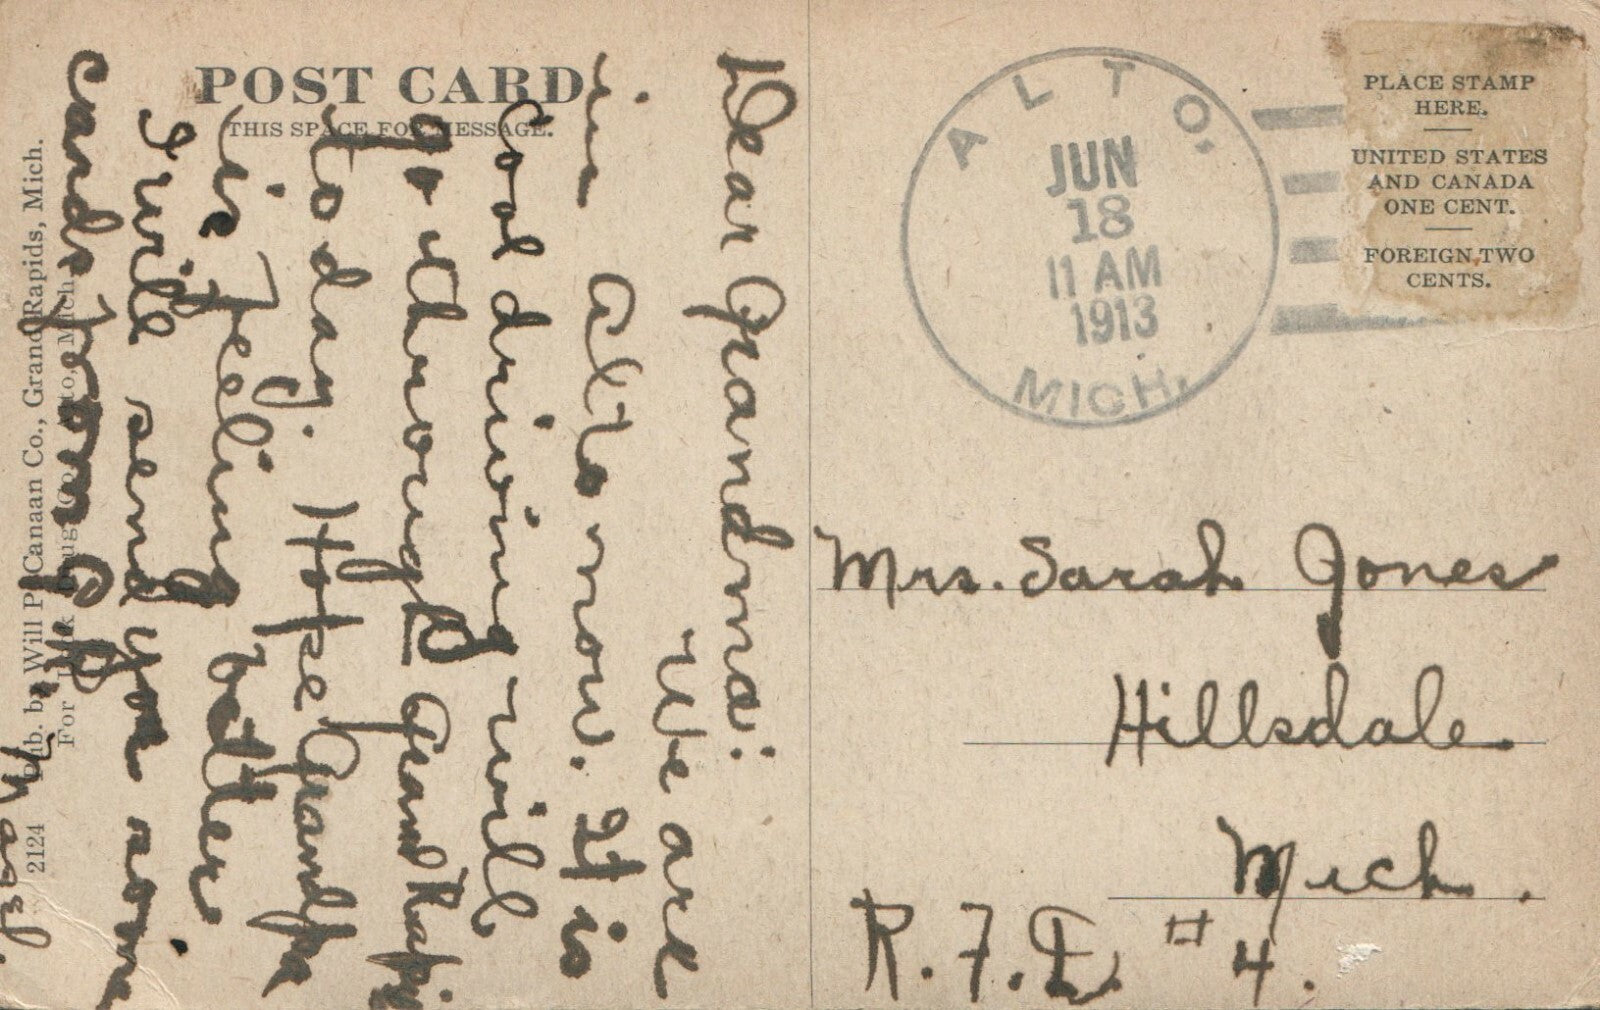 POST CARD
THIS SPACE FOR MESSAGE.
Dear Grandma:
We are
in Alto now. It is
cool driving will
go through Grand Rapids
to day. Hope Grandpa
is feeling better
I will send you some
cards from G.R.
2124 Pub. by Will P. Canaan Co., Grand Rapids, Mich.
ALTO,
JUN
18
11 AM
1913
MICH.
PLACE STAMP
HERE.
UNITED STATES
AND CANADA
ONE CENT.
FOREIGN, TWO
CENTS.
Mrs. Sarah Jones
Hillsdale
Mich.
R.F.D. #4.